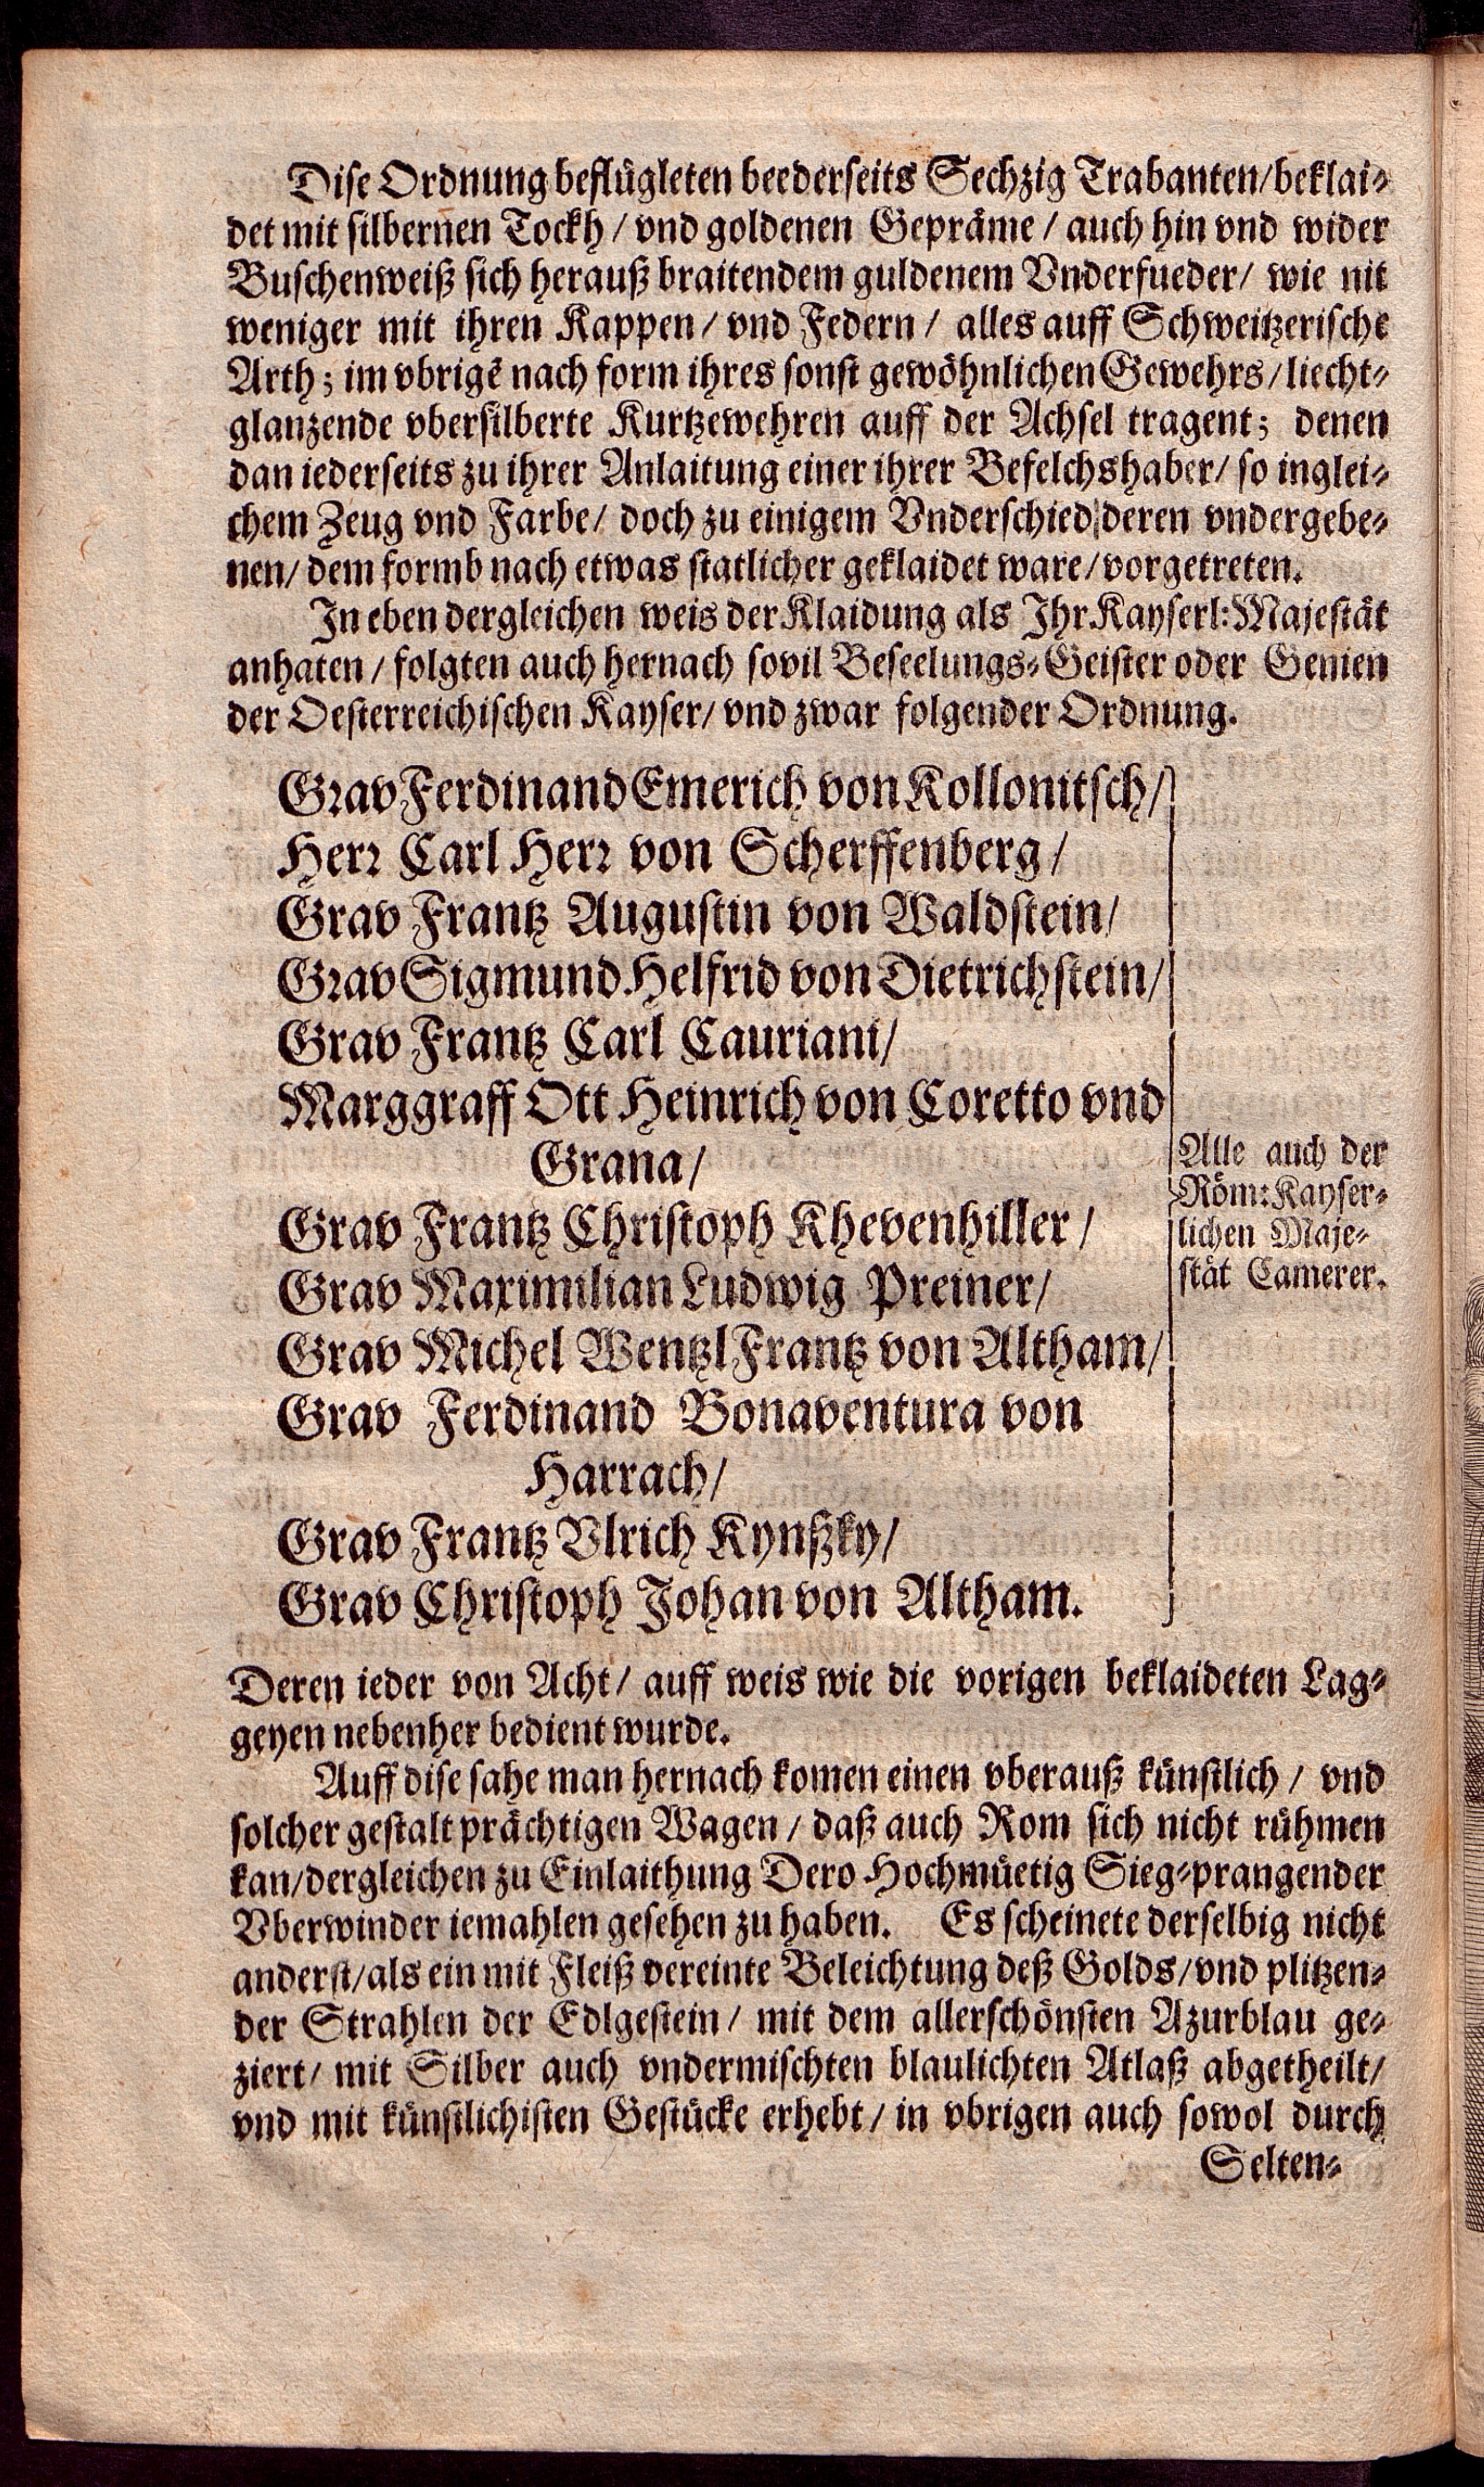 Dise Ordnung beflügleten beederseits Sechzig Trabanten/beklai-
det mit silbernen Tockh / vnd goldenen Gepräme / auch hin vnd wider
Buschenweiß sich herauß braitendem guldenem Vnderfueder/ wie nit
weniger mit ihren Kappen / vnd Federn / alles auff Schweitzerische
Arth; im vbrigẽ nach form ihres sonst gewöhnlichen Gewehrs/liecht-
glanzende vbersilberte Kurtzewehren auff der Achsel tragent; denen
dan iederseits zu ihrer Anlaitung einer ihrer Befelchshaber/ so inglei-
chem Zeug vnd Farbe/ doch zu einigem Vnderschied deren vndergebe-
nen/ dem formb nach etwas statlicher geklaidet ware/vorgetreten.
In eben dergleichen weis der Klaidung als Ihr.Kayserl:Majestät
anhaten / folgten auch hernach sovil Beseelungs-Geister oder Genien
der Oesterreichischen Kayser/ vnd zwar folgender Ordnung.
Grav Ferdinand Emerich von Kollonitsch/
Herr Carl Herr von Scherffenberg /
Grav Frantz Augustin von Waldstein/
Grav Sigmund Helfrid von Dietrichstein/
Grav Frantz Carl Cauriani/
Marggraff Ott Heinrich von Coretto vnd
Grana/
Grav Frantz Christoph Khevenhiller /
Grav Maximilian Ludwig Preiner/
Grav Michel Wentzl Frantz von Altham/
Grav Ferdinand Bonaventura von
Harrach/
Grav Frantz Vlrich Kynßky/
Grav Christoph Johan von Altham.
Alle auch der
Röm:Kayser-
lichen Maje-
stät Camerer.
Deren ieder von Acht/ auff weis wie die vorigen beklaideten Lag-
geyen nebenher bedient wurde.
Auff dise sahe man hernach komen einen vberauß künstlich / vnd
solcher gestalt prächtigen Wagen / daß auch Rom sich nicht rühmen
kan/dergleichen zu Einlaithung Dero Hochmüetig Sieg-prangender
Vberwinder iemahlen gesehen zu haben. Es scheinete derselbig nicht
anderst/als ein mit Fleiß vereinte Beleichtung deß Golds/vnd plitzen-
der Strahlen der Edlgestein / mit dem allerschönsten Azurblau ge-
ziert/ mit Silber auch vndermischten blaulichten Atlaß abgetheilt/
vnd mit künstlichisten Gestücke erhebt / in vbrigen auch sowol durch
Selten-